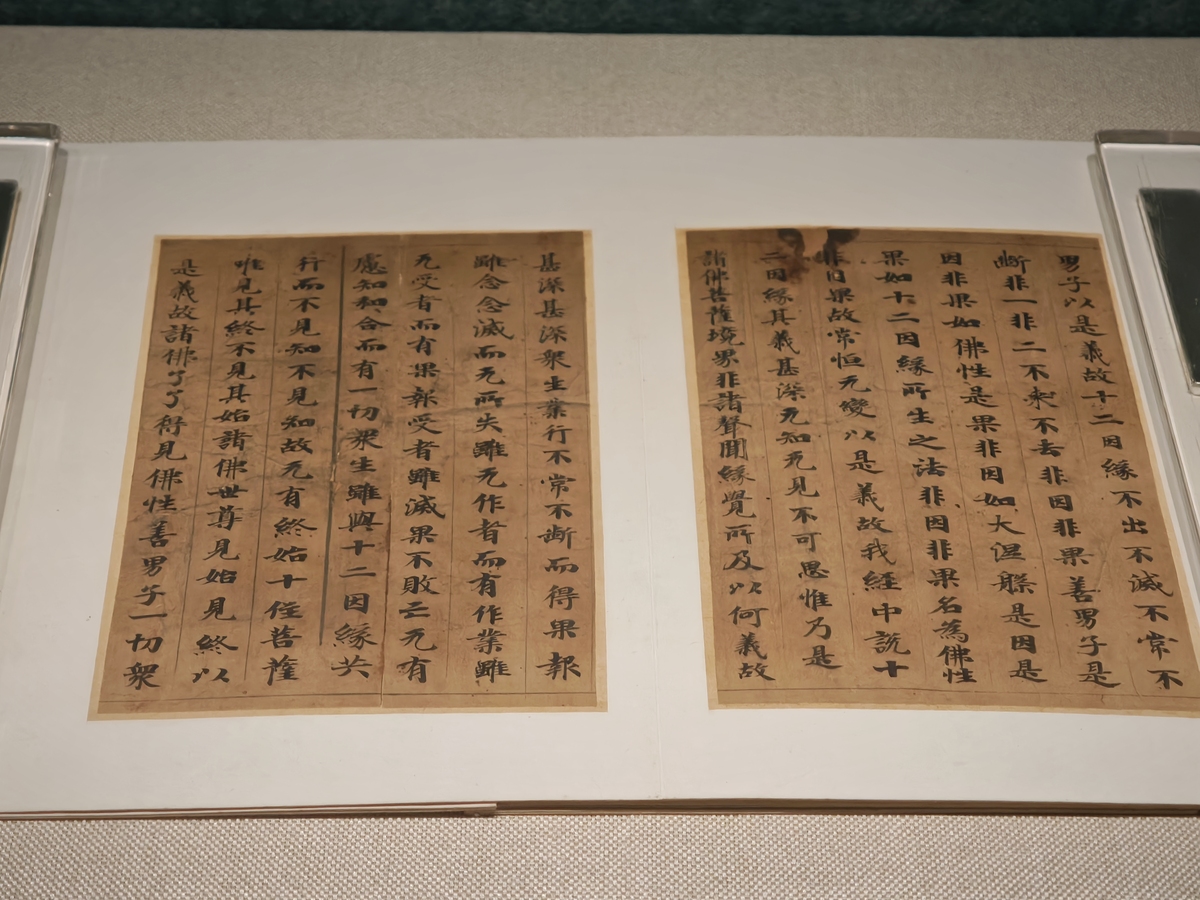 男子以是義故十二因緣不出不滅不常不
斷非一非二不來不去非因非果善男子是
因非果如佛性是果非因如大涅槃是因是
果如十二因緣所生之法非因非果名為佛性
非因果故常恒无變以是義故我經中說十
二因緣其義甚深无知无見不可思惟乃是
諸佛菩薩境界非諸聲聞緣覺所及以何義故
甚深甚深衆生業行不常不斷而得果報
雖念念滅而无所失雖无作者而有作業雖
无受者而有果報受者雖滅果不敗亡无有
慮知和合而有一切衆生雖與十二因緣共
行而不見知不見知故无有終始十住菩薩
唯見其終不見其始諸佛世尊見始見終以
是義故諸佛了了得見佛性善男子一切衆